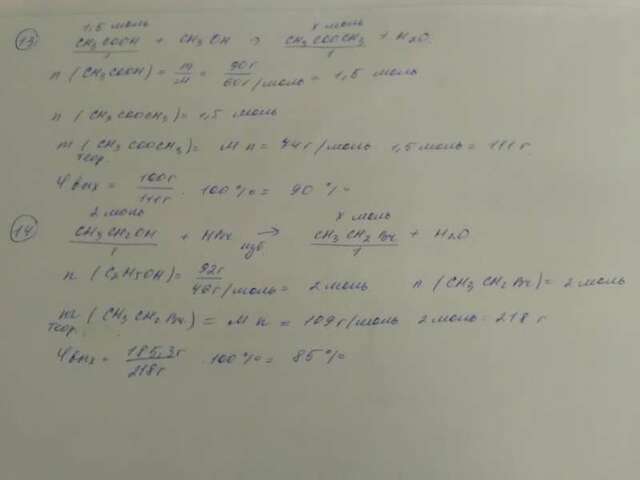 1,5 моль х моль
13 CH3COOH + CH3OH → CH3COOCH3 + H2O
1 1
n (CH3COOH) = m/M = 90г/60г/моль = 1,5 моль
n (CH3COOCH3) = 1,5 моль
m теор. (CH3COOCH3) = M n = 74г/моль 1,5 моль = 111г.
φ вых = 100г/111г · 100% = 90%
2 моль х моль
14 CH3CH2OH + HBr изб → CH3CH2Br + H2O
1 1
n (C2H5OH) = 92г/46г/моль = 2 моль n (CH3CH2Br) = 2 моль
m теор. (CH3CH2Br) = M n = 109г/моль 2 моль = 218 г
φ вых = 185,3г/218г · 100% = 85%